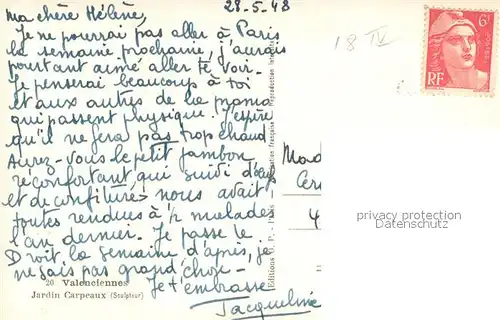 28-5-48
Ma chère Hélène,
Je ne pourrai pas aller à Paris
la semaine prochaine, j'aurais
pourtant aimé aller te voir.
Je penserai beaucoup à toi
et aux autres de la promo
qui passent physique. J'espère
qu'il ne fera pas trop chaud
Aurez-vous le petit jambon
réconfortant qui suivi d'œufs
et de confitures nous avait
toutes rendues à 1/2 malades
l'an dernier. Je passe le
Droit la semaine d'après, je
ne sais pas grand chose
Je t'embrasse
Jacqueline
20 Valenciennes
Jardin Carpeaux (Sculpteur)
18 IV
6F
RF
Mad
Cer
4
privacy protection
DauRanTer